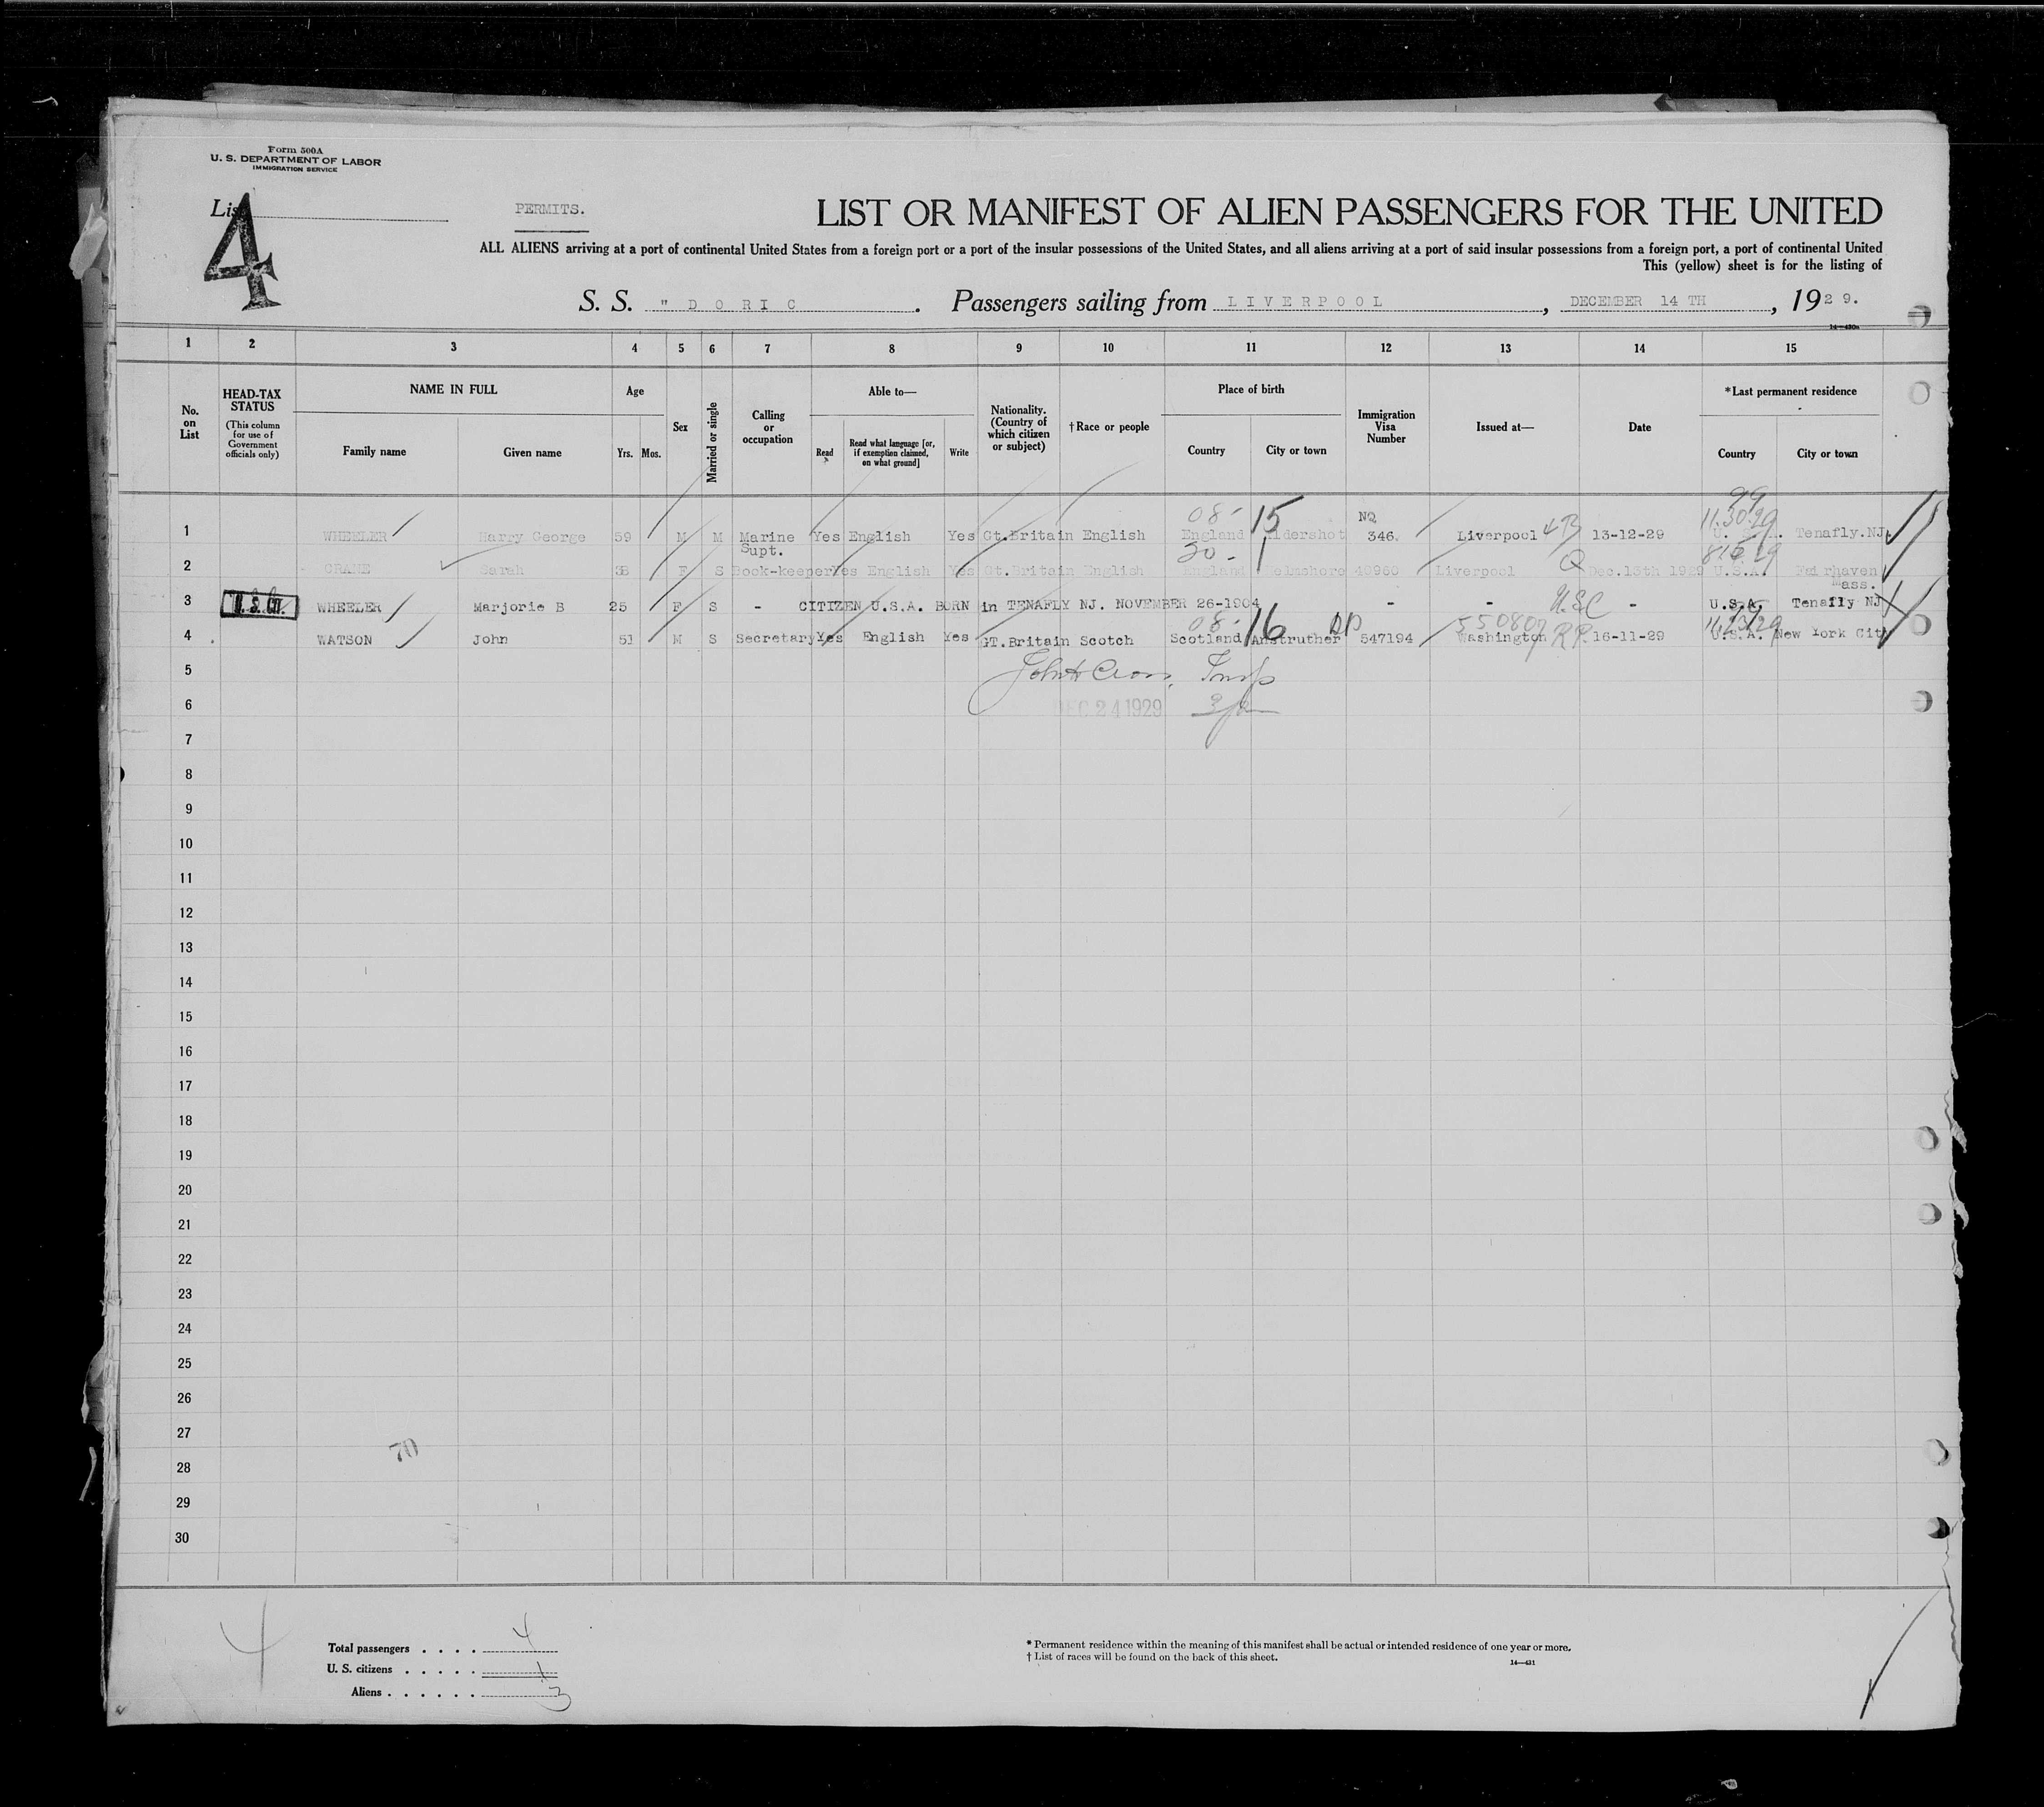 Form 500A
U. S. DEPARTMENT OF LABOR
IMMIGRATION SERVICE
List
4
PERMITS.
LIST OR MANIFEST OF ALIEN PASSENGERS FOR THE UNITED
ALL ALIENS arriving at a port of continental United States from a foreign port or a port of the insular possessions of the United States, and all aliens arriving at a port of said insular possessions from a foreign port, a port of continental United
This (yellow) sheet is for the listing of
S. S. " D O R I C . Passengers sailing from L I V E R P O O L , DECEMBER 14 TH , 1929.
1 2 3 4 5 6 7 8 9 10 11 12 13 14 15
No. on List
HEAD-TAX STATUS
(This column for use of Government officials only)
NAME IN FULL
Family name Given name
Age
Yrs. Mos.
Sex
Married or single
Calling or occupation
Able to—
Read
Read what language [or, if exemption claimed, on what ground]
Write
Nationality. (Country of which citizen or subject)
†Race or people
Place of birth
Country City or town
Immigration Visa Number
Issued at—
Date
*Last permanent residence
Country City or town
08- 15 99
NQ 11.30.29
1 WHEELER Harry George 59 M M Marine Supt. Yes English Yes Gt.Britain English England Aldershot 346. Liverpool 13-12-29 Tenafly.NJ.
30 - 1
2 CRANE Sarah 38 F S Book-keeper Yes English Yes Gt.Britain English England Helmshore 40960 Liverpool Q Dec.13th 1929 U.S.A. Fairhaven Mass.
3 WHEELER Marjorie B 25 F S - CITIZEN U.S.A. BORN in TENAFLY NJ. NOVEMBER 26-1904 - - USC - U.S.A. Tenafly NJ
08- 16 DP 550807
4 WATSON John 51 M S Secretary Yes English Yes GT.Britain Scotch Scotland Anstruther 547194 Washington RP 16-11-29 U.S.A. New York City
5
6 DEC 24 1929
7
8
9
10
11
12
13
14
15
16
17
18
19
20
21
22
23
24
25
26
27
70
28
29
30
4
Total passengers . . . . 4
U. S. citizens . . . . . 1
Aliens . . . . . . 3
* Permanent residence within the meaning of this manifest shall be actual or intended residence of one year or more.
† List of races will be found on the back of this sheet.
14—431